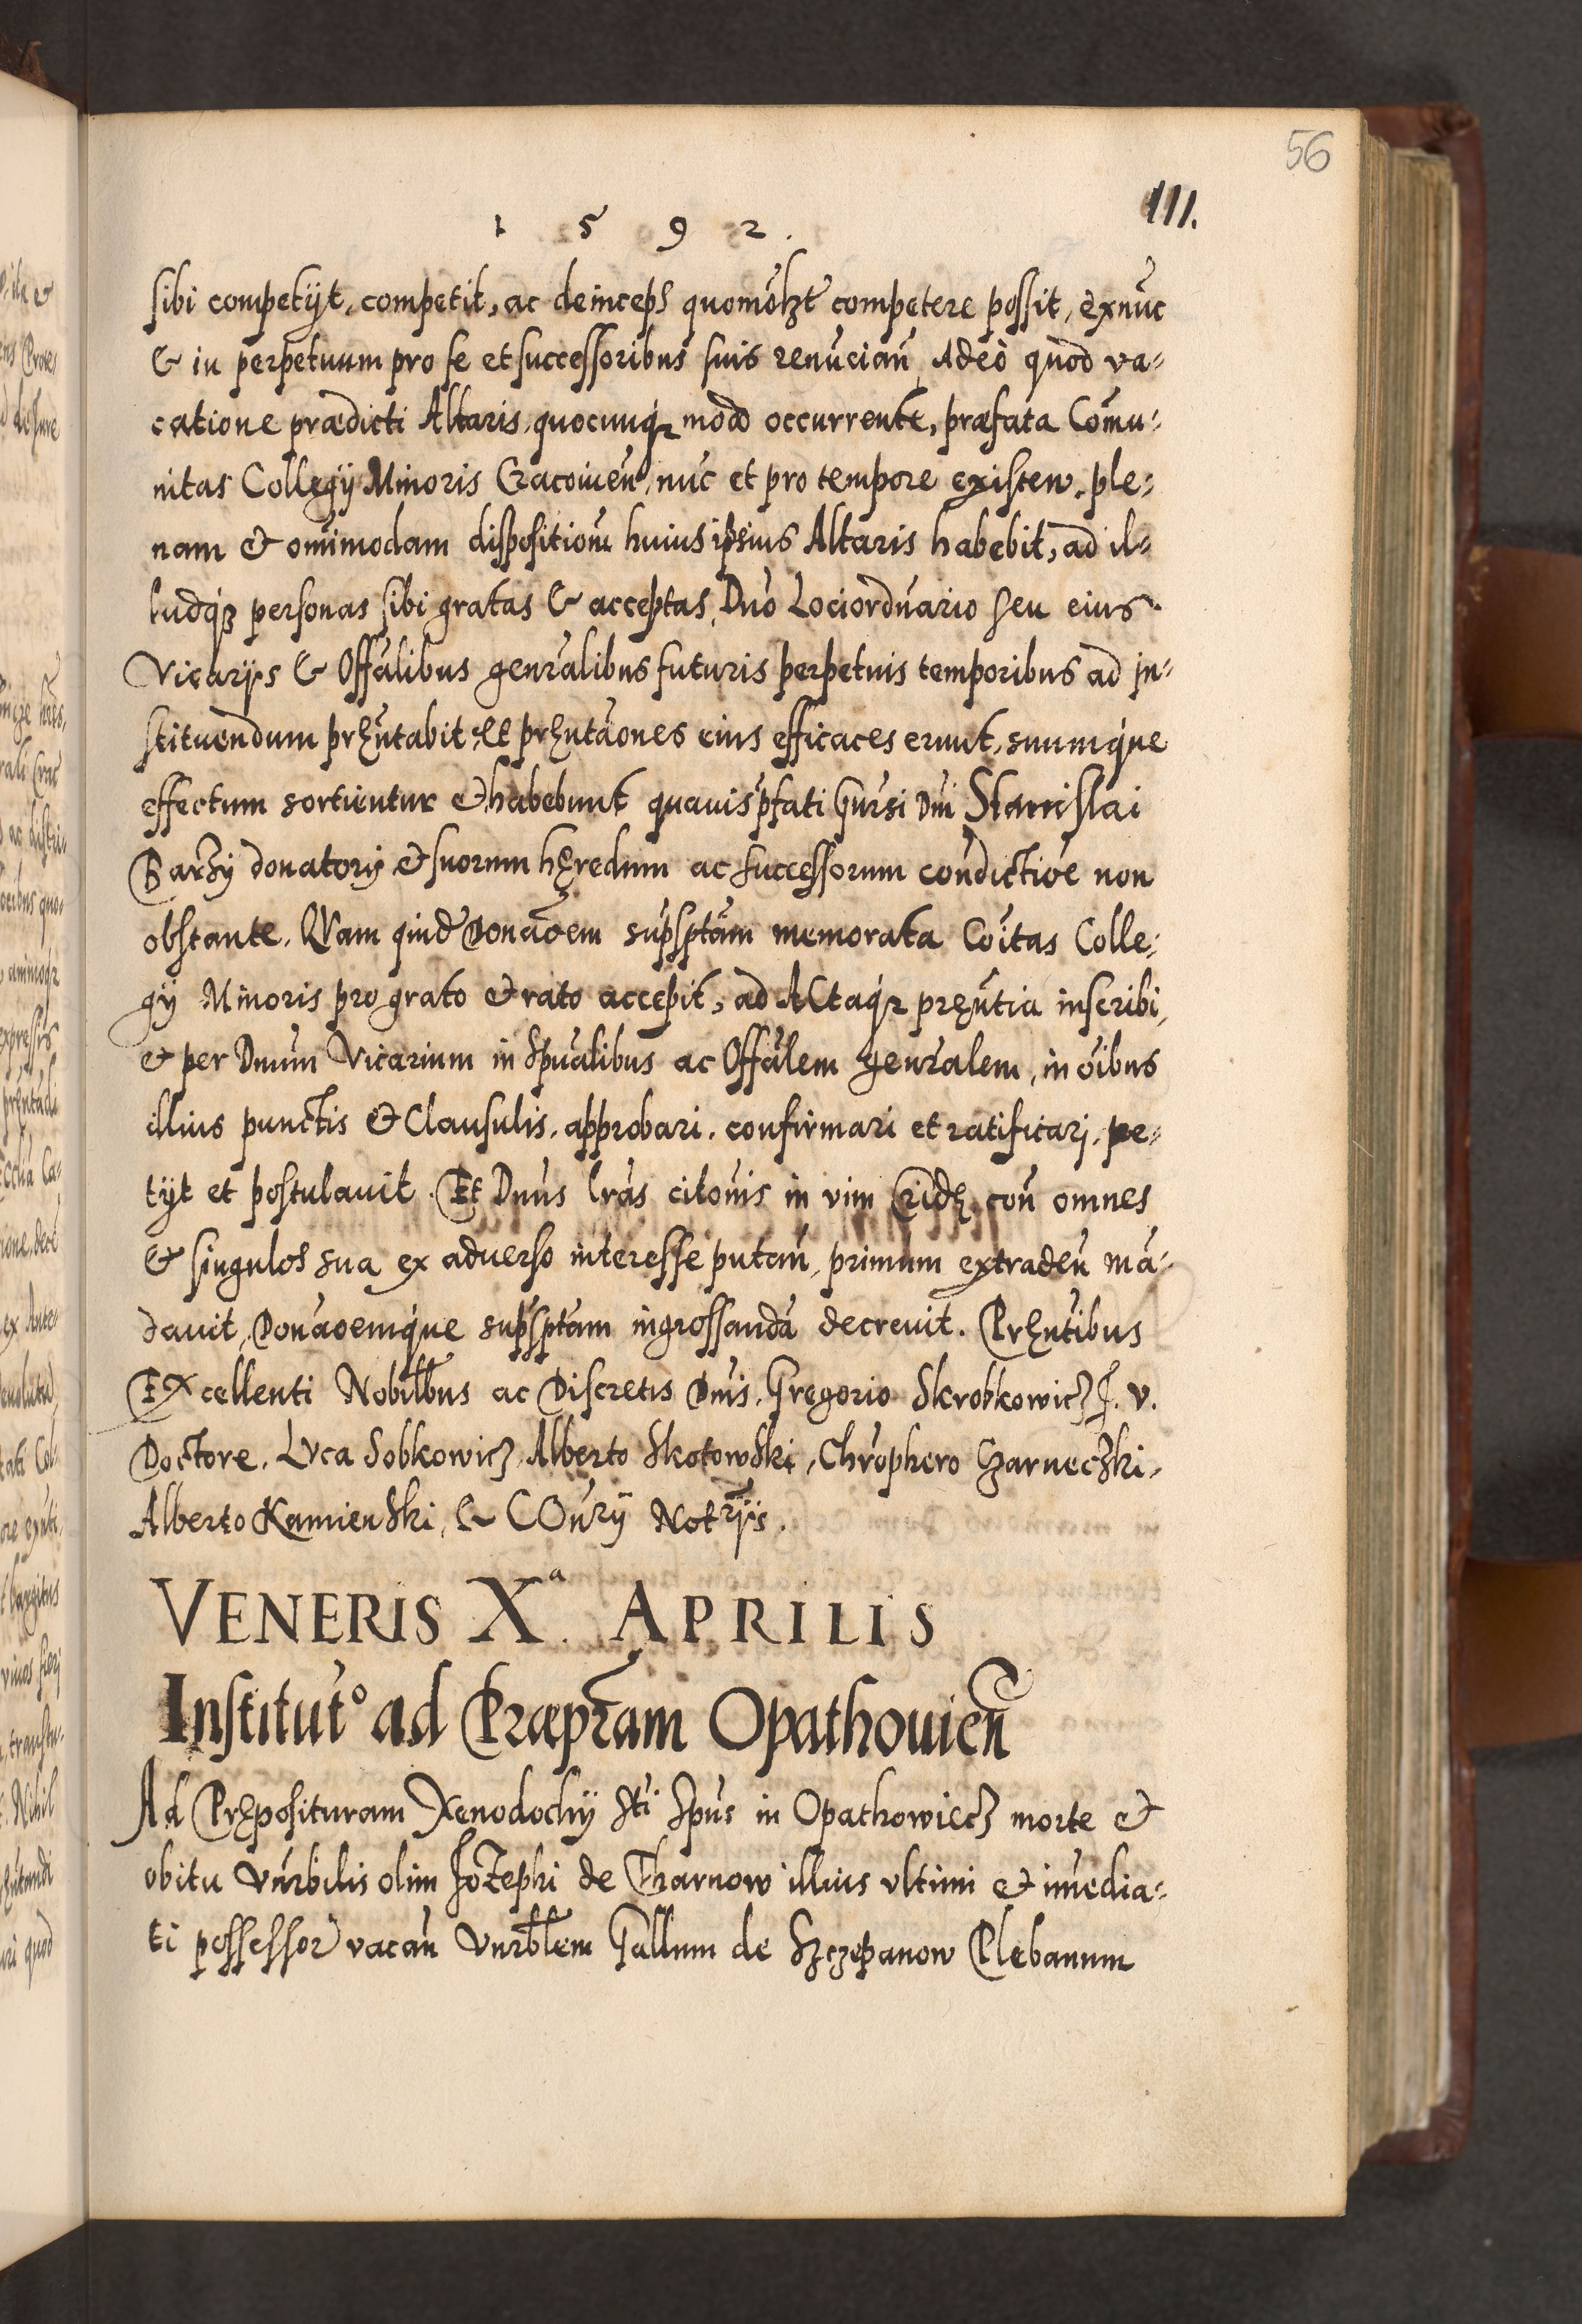 56
111.
1 5 9 2.
sibi competijt, competit, ac deinceps quomolꝫt competere possit, exnūc
& in perpetuum pro se et successoribus suis renūciań, Adeò quòd va-
catione prædicti Altaris, quocunqꝫ modo occurrente, præfata Com̄u-
nitas Collegij Minoris Cracouień, nūc et pro tempore existeń, ple-
nam & om̄imodam dispositionē huius ipsius Altaris habebit, ad il-
ludqꝫ personas sibi gratas & acceptas, Dńo Lociordńario seu eius
Vicarijs & Offālibus genrālibus futuris perpetuis temporibus ad in-
stituendum pręńtabit, et pręńtāones eius efficaces erunt, suumq́ue
effectum sortientur & habebunt quauis pfati Gūrsi Dńi Stanislai
Barzÿ donatoris & suorum hęredum ac successorum condictiōe non
obstante. QVam quid̄ Donāoem supsptām memorata Cōitas Colle-
gij Minoris pro grato & rato accepit, ad ACtaqꝫ pręńtia inscribi,
& per Dnūm Vicarium in Spūalibus ac Offālem genrālem, in ōibus
illius punctis & Clausulis, approbari, confirmari et ratificari, pe-
tijt et postulauit. Et Dnūs lrās citōnis in vim Cridę coń omnes
& singulos sua ex aduerso interesse putań, primùm extradeń mā-
dauit, Donāoemq́ue supsptām ingrossandā decreuit. Pręńtibus
EXcellenti Nobilbūs ac Discretis Dnīs, Gregorio Skrobkowicz J. V.
Doctore, LVca Sobkowicz, Alberto Skotowski, Chrōphero Czarneczki,
Alberto Kamienski, & COńrij Notrijs.
VENERIS Xᵃ. APRILIS
Institut̄o ad Præpr̄am Opathouień
Ad Pręposituram Xenodochij Sti Spūs in Opathowiecz morte &
obitu Vnrbīlis olim Jozephi de Tharnow illius vltimi & im̄edia-
ti possessor̄ vacań Vnrblēm Gallum de Szczepanow Plebanum